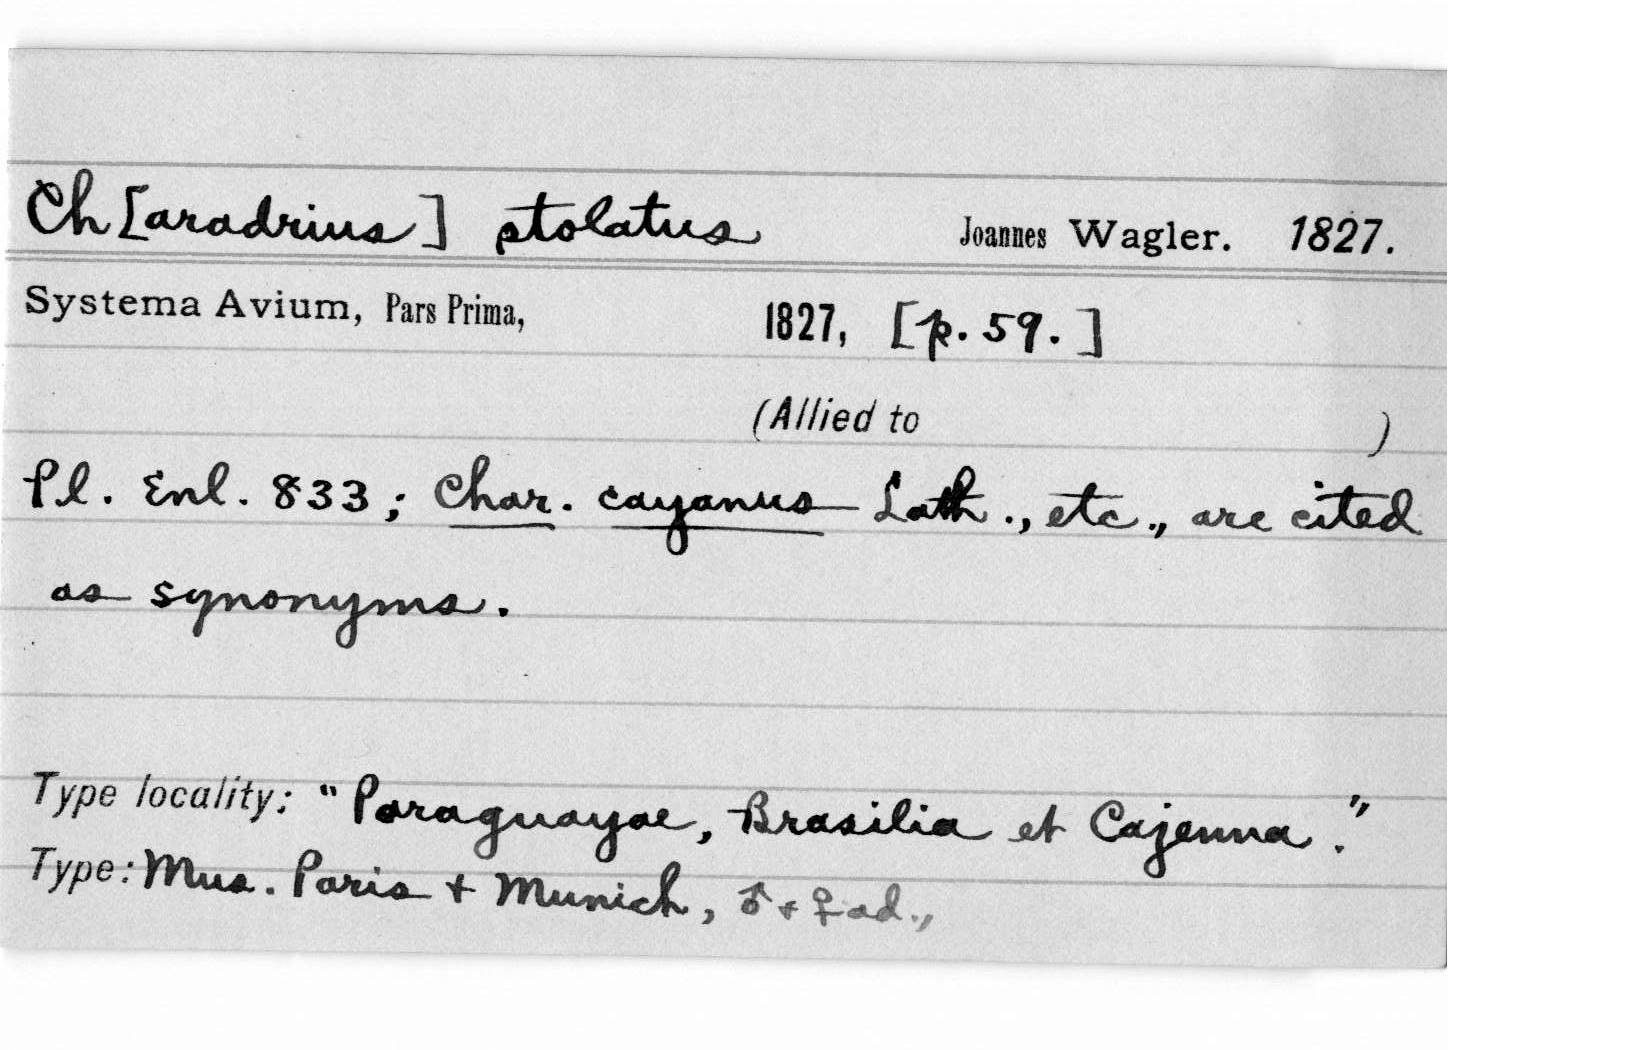 Ch[aradrius] stolatus Joannes Wagler. 1827.
Systema Avium, Pars Prima, 1827, [p. 59.]
(Allied to )
Pl. Enl. 833; Char. cayanus Lath., etc., are cited
as synonyms.
Type locality: "Paraguayae, Brasilia et Cajenna."
Type: Mus. Paris + Munich, ♂ + ♀ ad.,